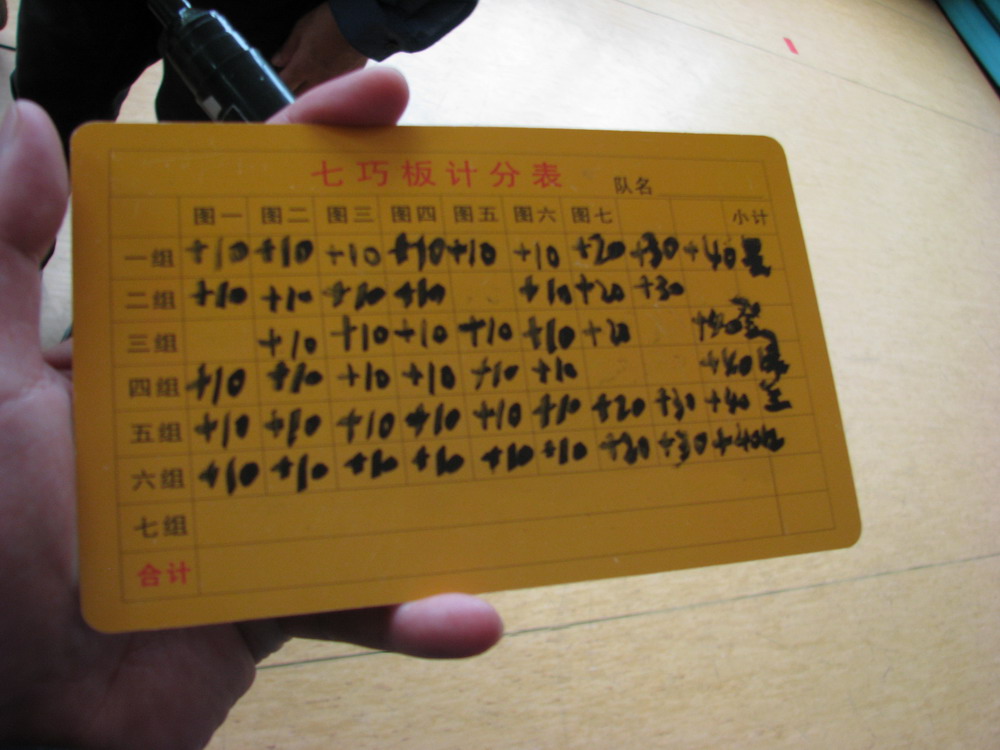 七巧板计分表 队名
图一 图二 图三 图四 图五 图六 图七 小计
一组 +10 +10 +10 +10 +10 +10 +20 +30 +40
二组 +10 +10 +10 +10 +10 +20 +30
三组 +10 +10 +10 +10 +10 +20
四组 +10 +10 +10 +10 +10 +10
五组 +10 +10 +10 +10 +10 +10 +20 +30 +40
六组 +10 +10 +10 +10 +10 +10
七组
合计